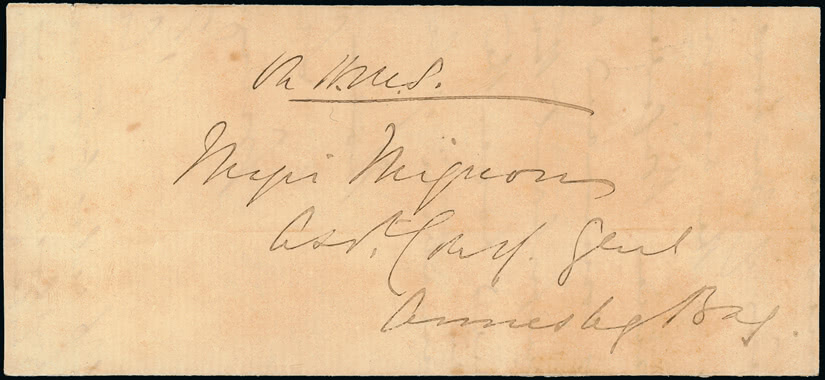 On H.M.S.
Major Mignon
Asst. Comy. Genl
Annesley Bay.